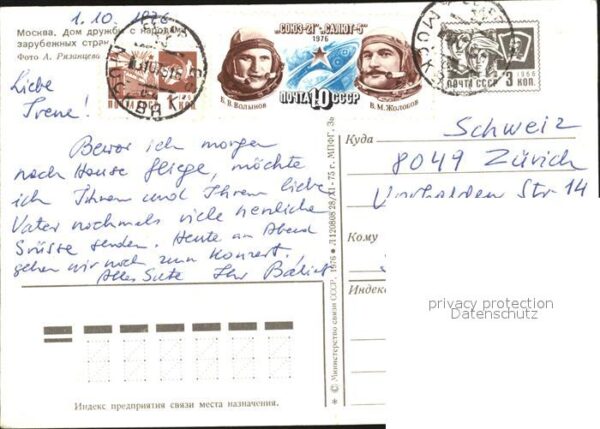 1.10.1976
Москва. Дом дружбы с народами
зарубежных стран
Фото А. Рязанцева
Liebe
Irene!
Bevor ich morgen
nach Hause fliege, möchte
ich Ihnen und Ihrem liebe
Vater nochmals viele herzliche
Grüsse senden. Heute am Abend
gehen wir noch zum Konzert.
Alles Gute Ihr Bálint
„СОЮЗ-21" - „САЛЮТ-5"
1976
Б. В. Волынов
ПОЧТА 10 К СССР
В. М. Жолобов
ПОЧТА СССР
1966
3 КОП.
МОСКВА
Куда
Schweiz
8049 Zürich
Str 14
Кому
Индекс
© Министерство связи СССР. 1976 Л 120808 28/XI-75 г. МПФГ. Зь
privacy protection
Datenschutz
Индекс предприятия связи места назначения.